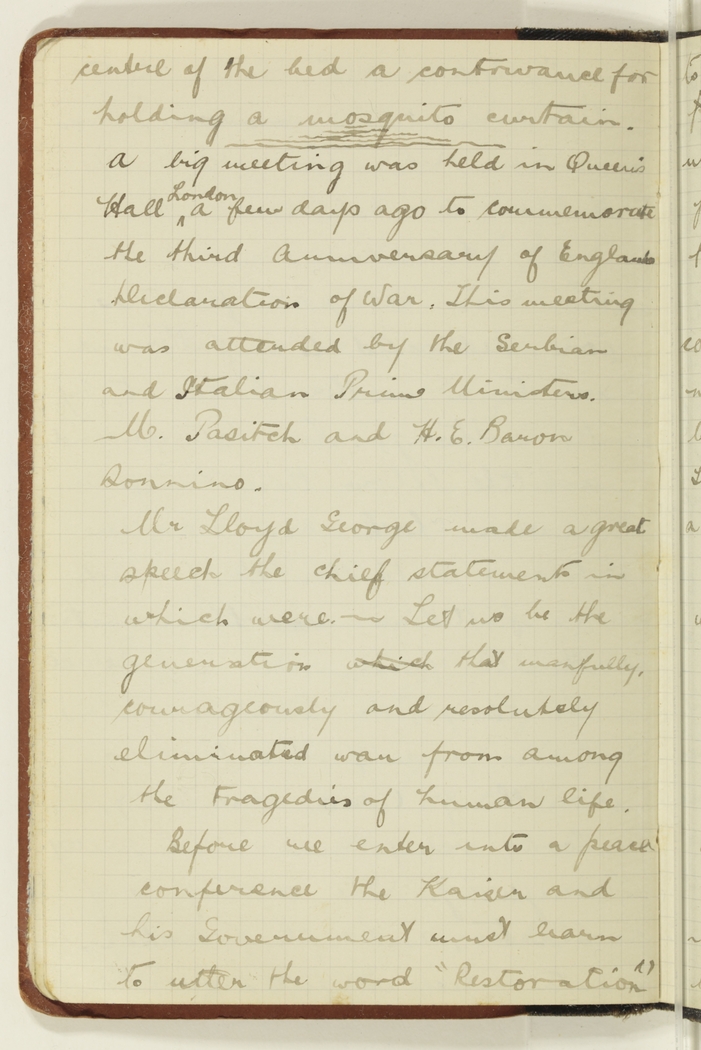 centre of the bed a contrivance for
holding a mosquito curtain.
A big meeting was held in Queen's
Hall London a few days ago to commemorate
the third Anniversary of Englands
Declaration of War. This meeting
was attended by the Serbian
and Italian Prime Ministers.
M. Pasitch and H.E. Baron
Sonnino.
Mr Lloyd George made a great
speech the chief statements in
which were.— Let us be the
generation which that manfully,
courageously and resolutely
eliminated war from among
the tragedies of human life.
Before we enter into a peace
conference the Kaiser and
his Government must learn
to utter the word "Restoration"